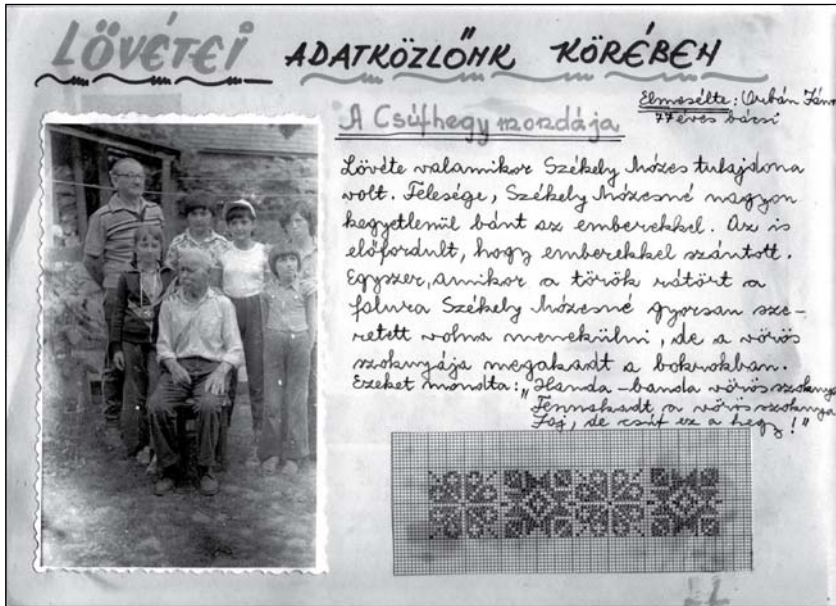 LÖVÉTEI ADATKÖZLŐNK KÖRÉBEN
Elmesélte: Orbán János
77 éves bácsi
A Csúfhegy mondája
Lövéte valamikor Székely Mózes tulajdona
volt. Felesége, Székely Mózesné nagyon
kegyetlenül bánt az emberekkel. Az is
előfordult, hogy emberekkel szántott.
Egyszer, amikor a török rátört a
falura Székely Mózesné gyorsan sze-
retett volna menekülni, de a vörös
szoknyája megakadt a bokrokban.
Ezeket mondta: „Handa-banda vörös szoknya
Fennakadt a vörös szoknya
Jaj, de csúf ez a hegy!"